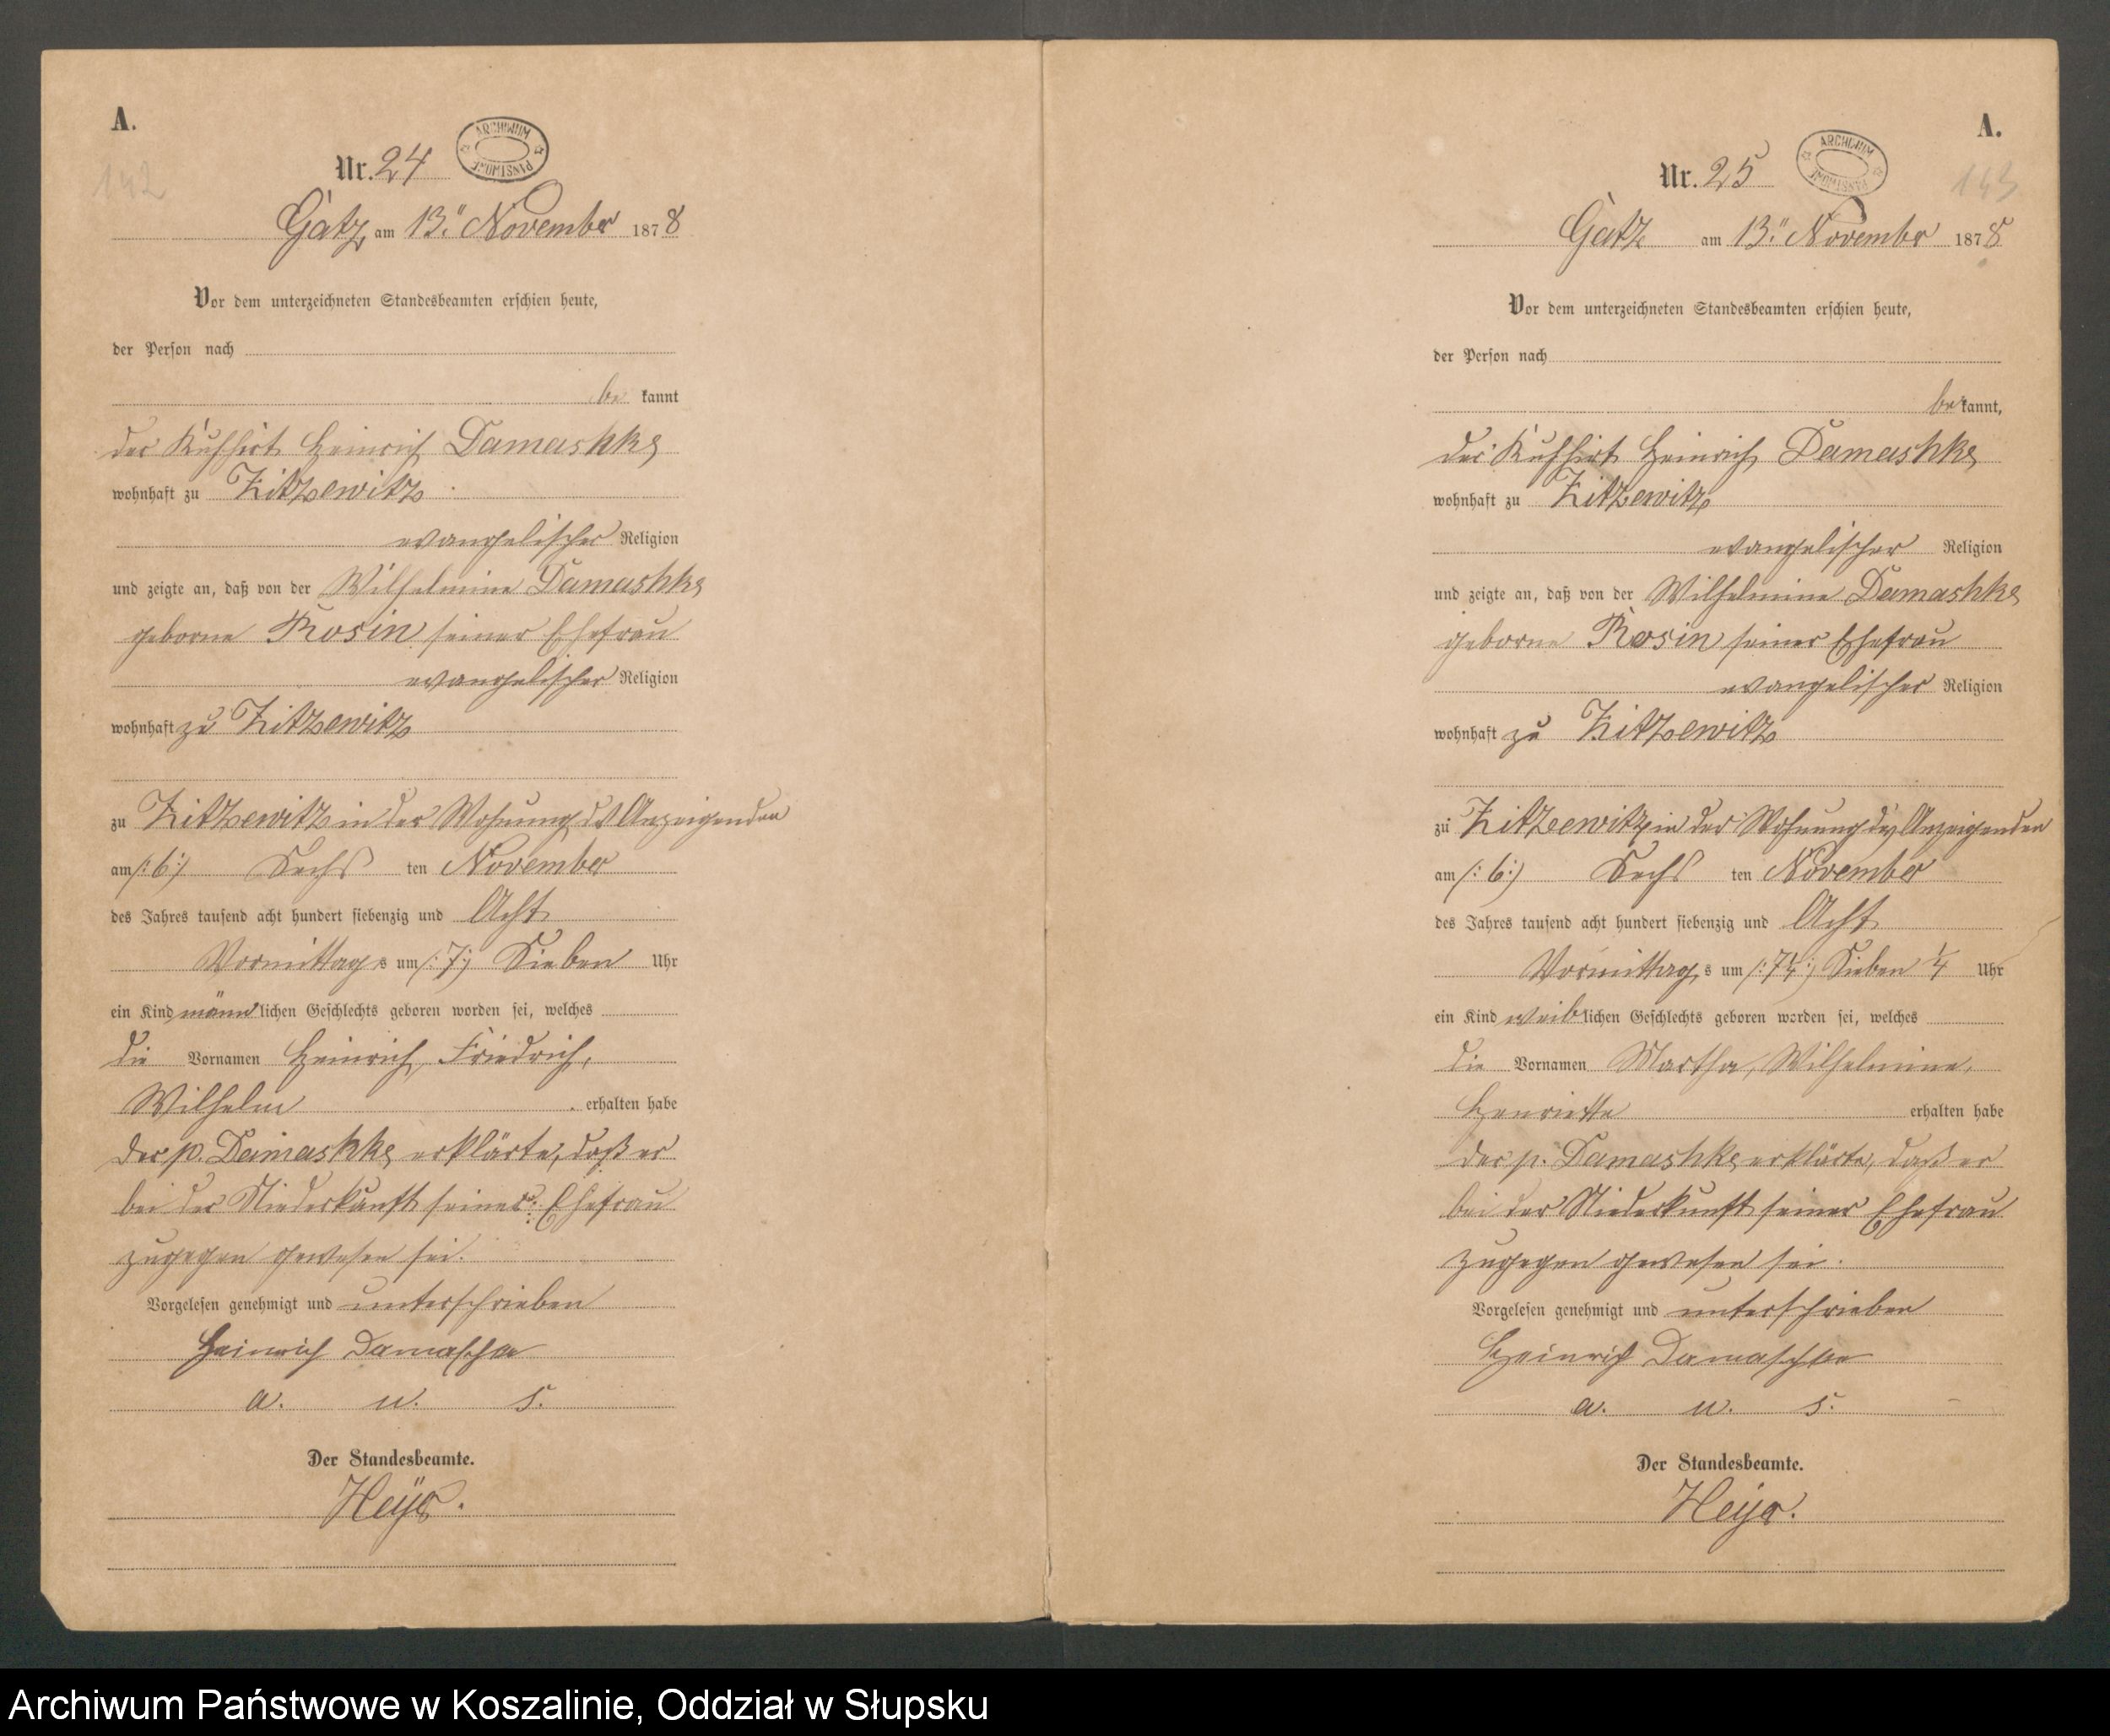 A.
142
Nr. 24
ARCHIWUM PAŃSTWOWE
Gatz, am 13." November 1878
Vor dem unterzeichneten Standesbeamten erschien heute,
der Person nach
be kannt
der Kuhhirt Heinrich Damashke
wohnhaft zu Zitzewitz
evangelischer Religion
und zeigte an, daß von der Wilhelmine Damashke
geborne Rosin seiner Ehefrau
evangelischer Religion
wohnhaft zu Zitzewitz
zu Zitzewitz in der Wohnung des Anzeigenden
am /:6:/ Sechs ten November
des Jahres tausend acht hundert siebenzig und Acht
Vormittag s um /:7:/ Sieben Uhr
ein Kind männ lichen Geschlechts geboren worden sei, welches
die Vornamen Heinrich, Friedrich,
Wilhelm erhalten habe
Der p. Damashke erklärte, daß er
bei der Niederkunft seiner Ehefrau
zugegen gewesen sei.
Vorgelesen genehmigt und unterschrieben
Heinrich Damaschke
a. u. s.
Der Standesbeamte.
Heyer.
A.
143
Nr. 25
ARCHIWUM PAŃSTWOWE
Gatz am 13." November 1878
Vor dem unterzeichneten Standesbeamten erschien heute,
der Person nach
be kannt,
der Kuhhirt Heinrich Damashke
wohnhaft zu Zitzewitz
evangelischer Religion
und zeigte an, daß von der Wilhelmine Damashke
geborne Rosin seiner Ehefrau
evangelischer Religion
wohnhaft zu Zitzewitz
zu Zitzewitz in der Wohnung des Anzeigenden
am /:6:/ Sechs ten November
des Jahres tausend acht hundert siebenzig und Acht
Vormittag s um /:7¼:/ Sieben ¼ Uhr
ein Kind weib lichen Geschlechts geboren worden sei, welches
die Vornamen Martha, Wilhelmine,
Henriette erhalten habe
Der p. Damashke erklärte, daß er
bei der Niederkunft seiner Ehefrau
zugegen gewesen sei.
Vorgelesen genehmigt und unterschrieben
Heinrich Damaschke
a. u. s.
Der Standesbeamte.
Heyer.
Archiwum Państwowe w Koszalinie, Oddział w Słupsku